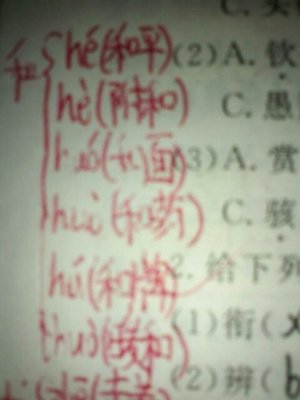 C.
和 hé(和平)
(2)A.钦
hè(附和)
C.愚
huó(和面)
(3)A.赏
huò(和药)
C.骇
hú(和牌)
2.给下列
(暖和)
(1)衔(
(2)辨(b